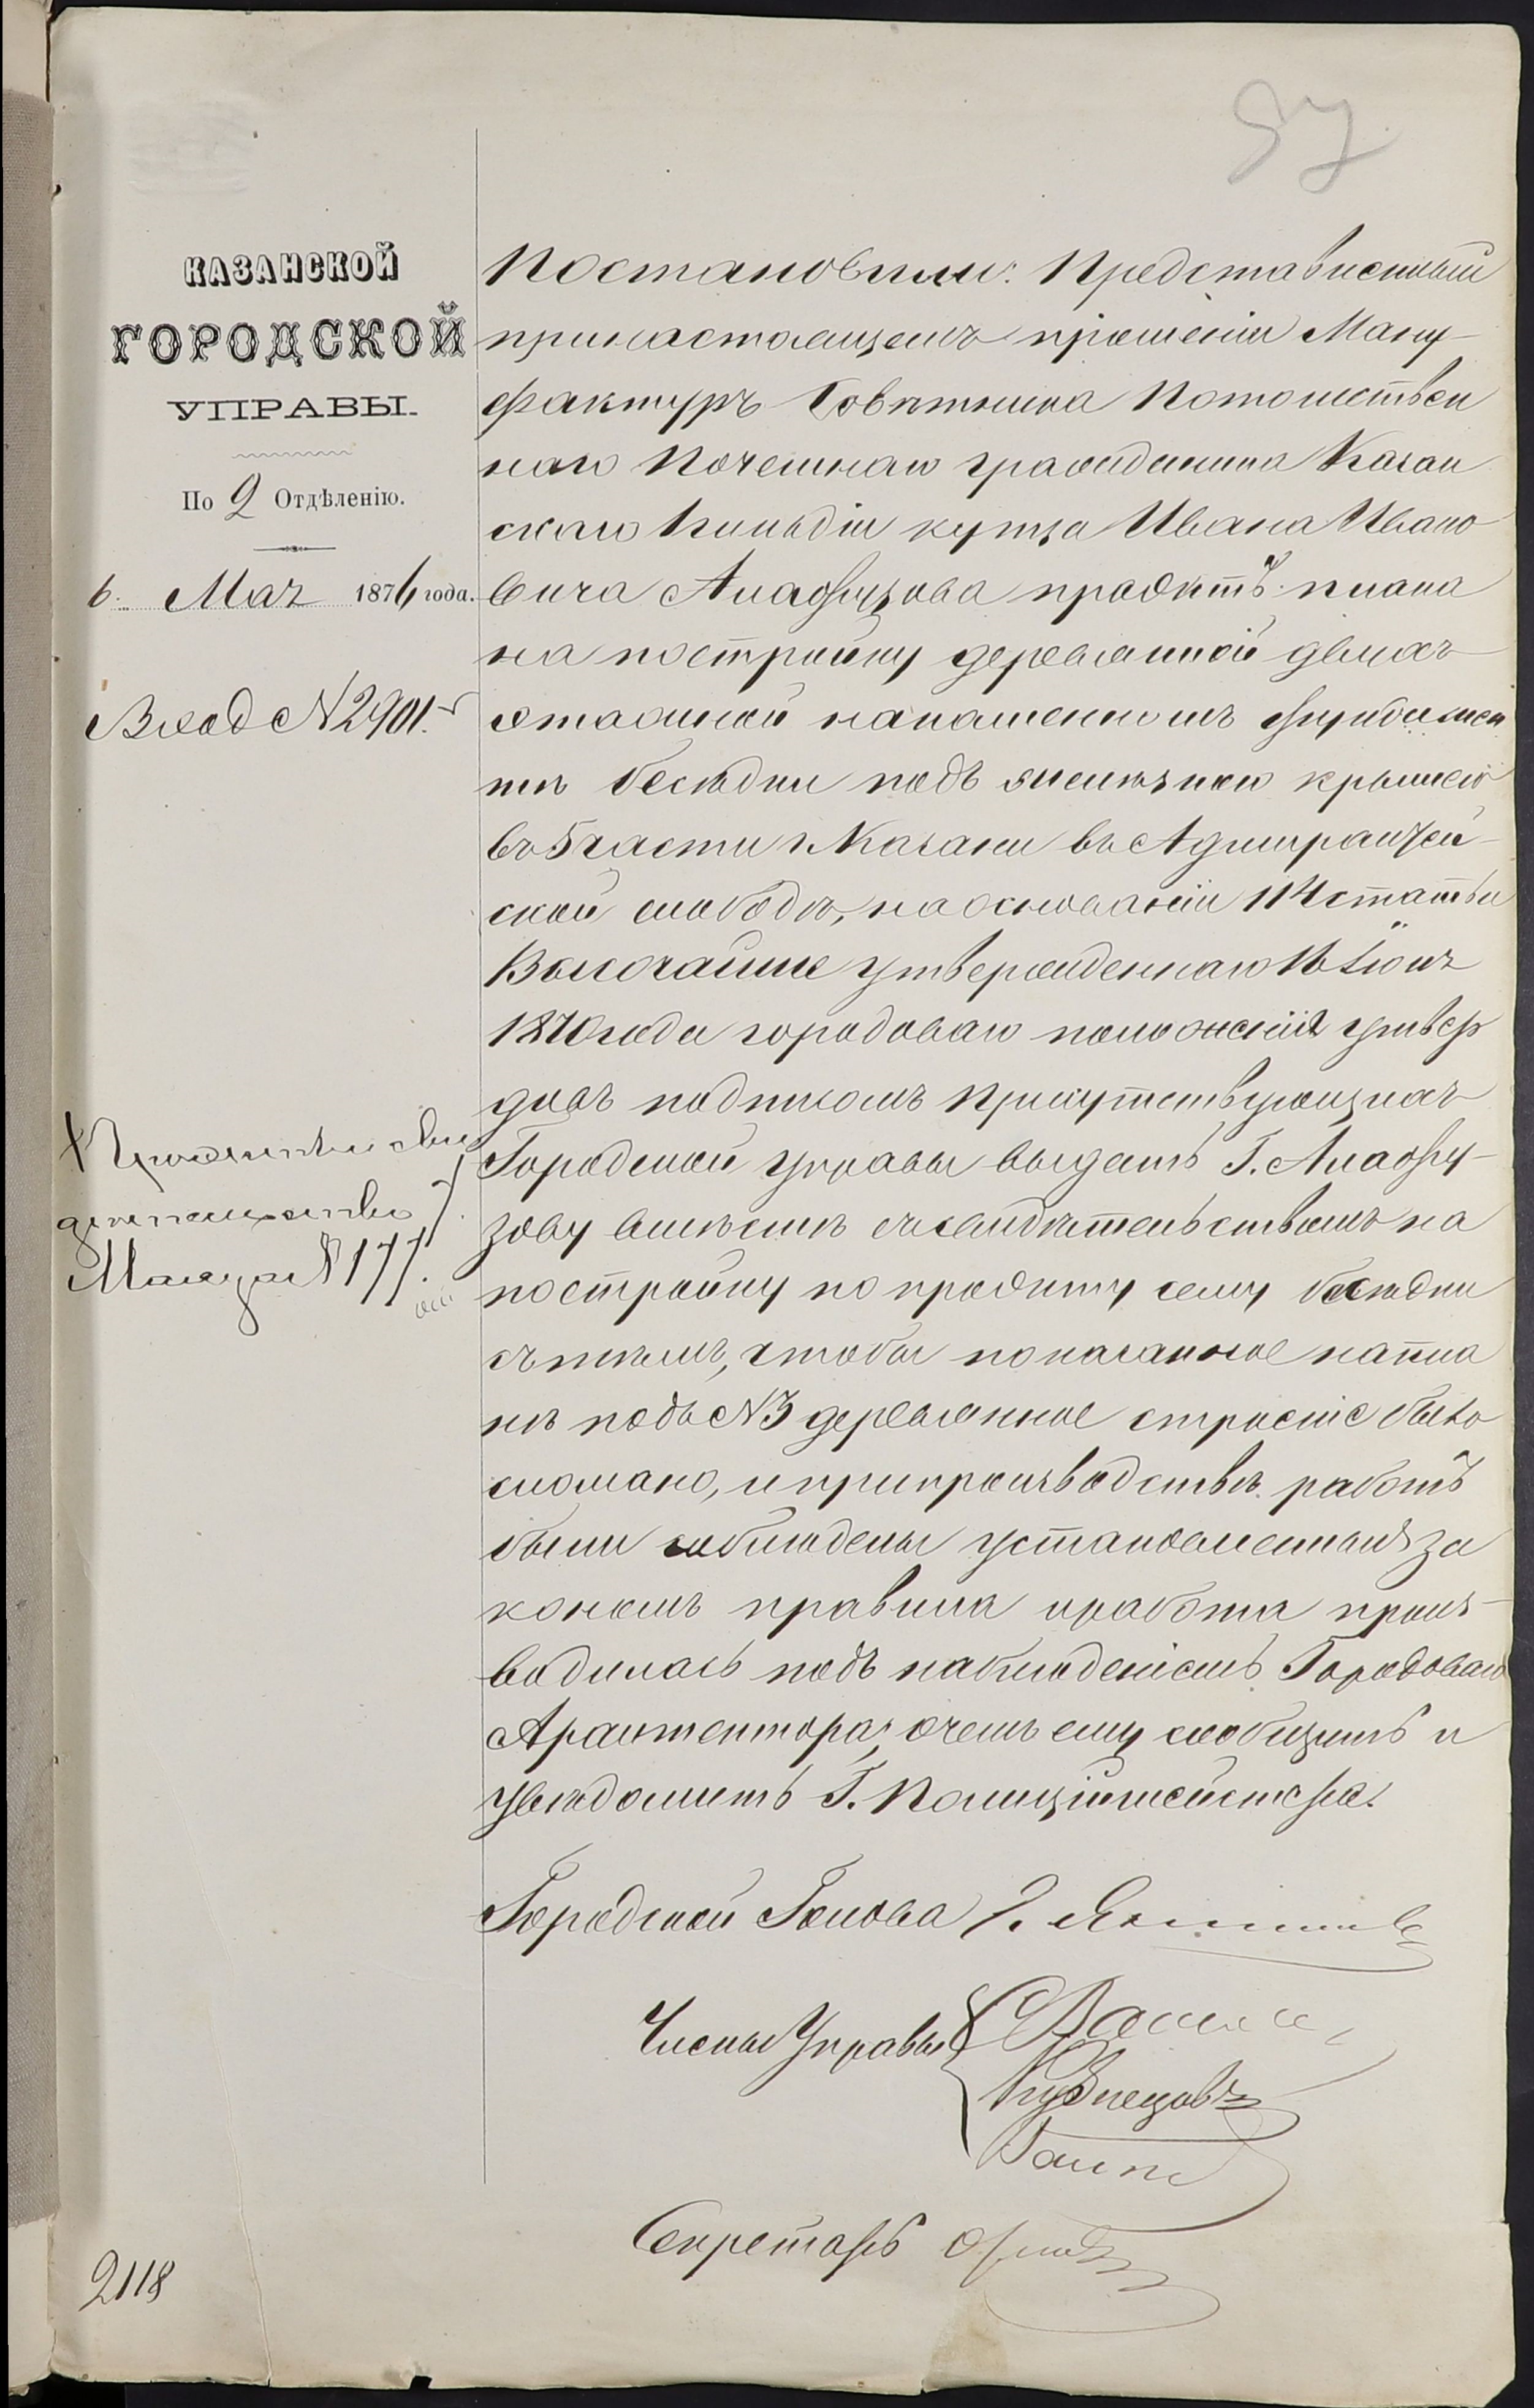 97
КАЗАНСКОЙ
ГОРОДСКОЙ
УПРАВЫ.
По 2 Отдѣленію.
6. Мая 1876 года.
Вход №2901.
№ 177.
2118
Постановили: Представленный
принастоящемъ прошеніи Ману-
фактуръ Совѣтника Потомствен
наго Почетнаго гражданина Казан
скаго 1 гильдіи купца Ивана Ивано
вича Алафузова проэктъ плана
на постройку деревянной двухъ
этажной накаменномъ фундамен
тѣ бесѣдки подъ желѣзною крышею
въ 5 части г. Казани въ Адмиралтей-
ской слободѣ, наоснованіи 114 статьи
Высочайше утвержденнаго 16 Іюня
1870 года городоваго положенія утвер
дивъ подписомъ присутствующихъ
Городской управы выдать Г. Алафу-
зову вмѣстѣ съ свидѣтельствомъ на
постройку по проэкту сему бесѣдки
съ тѣмъ, чтобы показанное напла
нѣ подъ №3 деревянное строеніе было
сломано, и припроизводствѣ работъ
были соблюдены установленныя за
кономъ правила и работа произ-
водилась подъ наблюденіемъ Городоваго
Архитектора, очемъ ему сообщить и
увѣдомить Г. Полиціймейстера.
Городской Голова
Члены Управы
Кузнецовъ
Секретарь